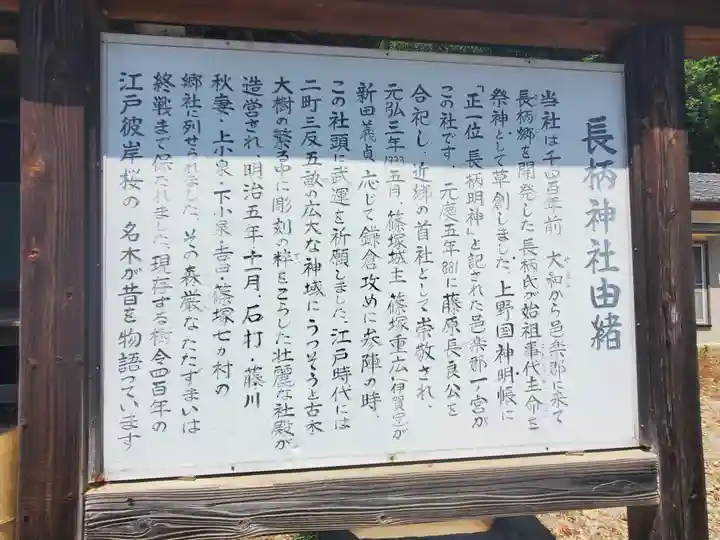 長柄神社由緒
当社は千四百年前 大和から邑楽郡に来て
長柄郷を開発した長柄氏が始祖事代主命を
祭神として草創しました、上野国神明帳に
「正一位 長柄明神」と記された邑楽郡一宮が
この社です、元慶五年881に藤原長良公を
合祀し、近郷の首社として崇敬され、
元弘三年1333五月、篠塚城主 篠塚重広(伊賀守)が
新田義貞に応じて鎌倉攻めに参陣の時、
この社頭に武運を祈願しました、江戸時代には
二町三反五畝の広大な神域にうっそうと古木・
大樹の繁る中に彫刻の粋をこらした壮麗な社殿が
造営され、明治五年十一月、石打・藤川
秋妻・上小泉・下小泉・吉田・篠塚七ヵ村の
郷社に列せられました、その森厳なたたずまいは
終戦まで保たれました、現存する樹令四百年の
江戸彼岸桜の 名木が昔を物語っています